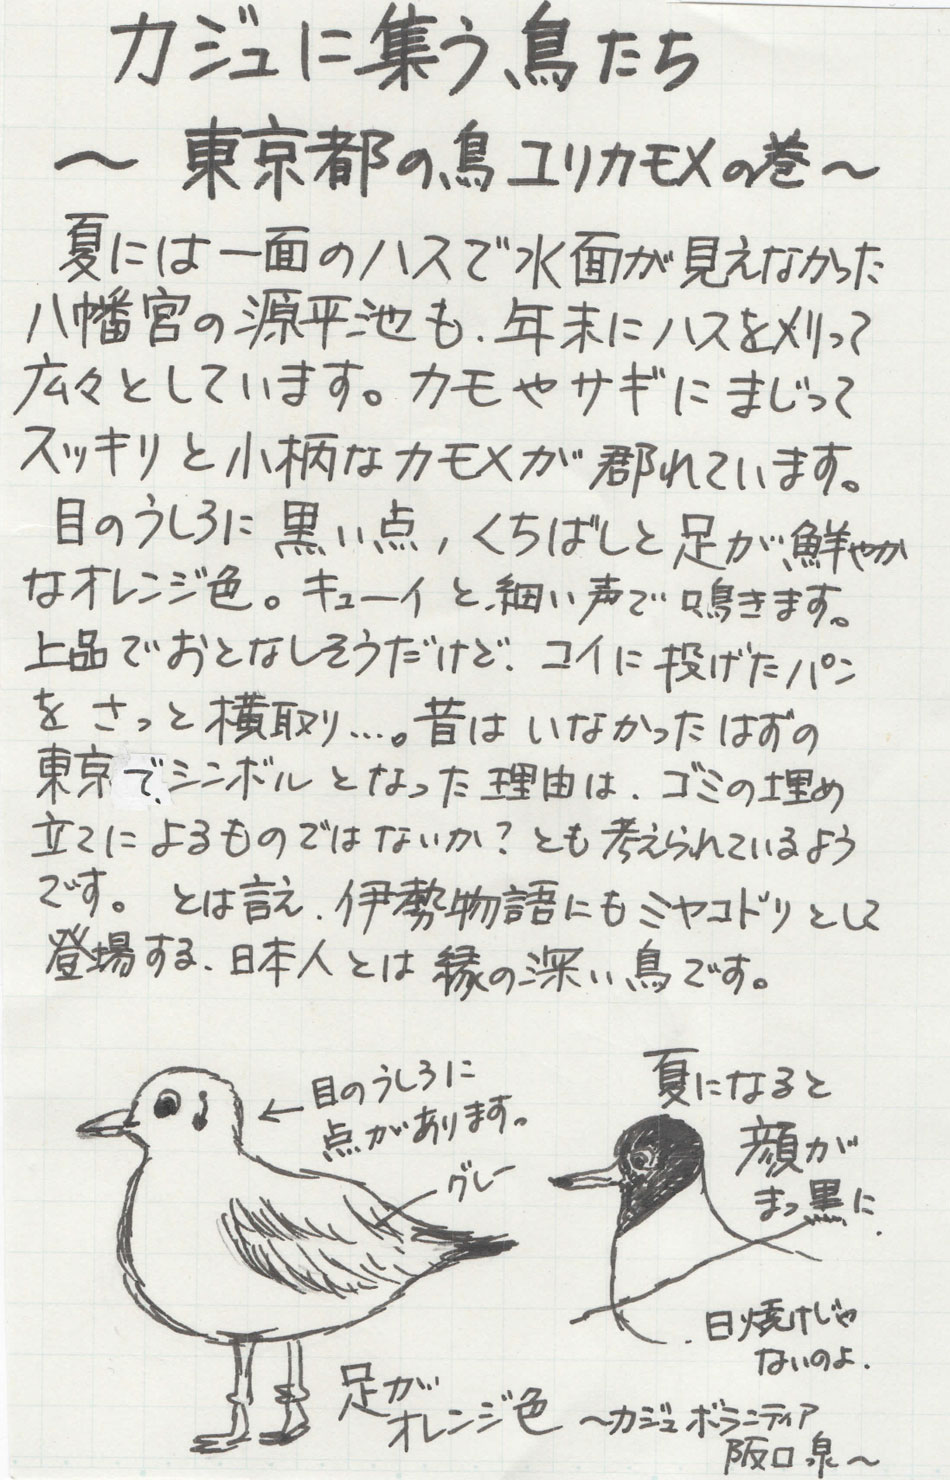 カジュに集う鳥たち
〜 東京都の鳥 ユリカモメの巻〜
夏には一面のハスで水面が見えなかった
八幡宮の源平池も、年末にハスを刈って
広々としています。カモやサギにまじって
スッキリと小柄なカモメが郡れています。
目のうしろに黒い点,くちばしと足が鮮やか
なオレンジ色。キューイと細い声で鳴きます。
上品でおとなしそうだけど、コイに投げたパン
をさっと横取り…。昔はいなかったはずの
東京でシンボルとなった理由は、ゴミの埋め
立てによるものではないか?とも考えられているよう
です。とは言え、伊勢物語にもミヤコドリとして
登場する、日本人とは縁の深い鳥です。
←目のうしろに
点があります。
グレー
足が
オレンジ色
夏になると
顔が
まっ黒に.
日焼けじゃ
ないのよ.
〜カジュ ボランティア
阪口泉〜